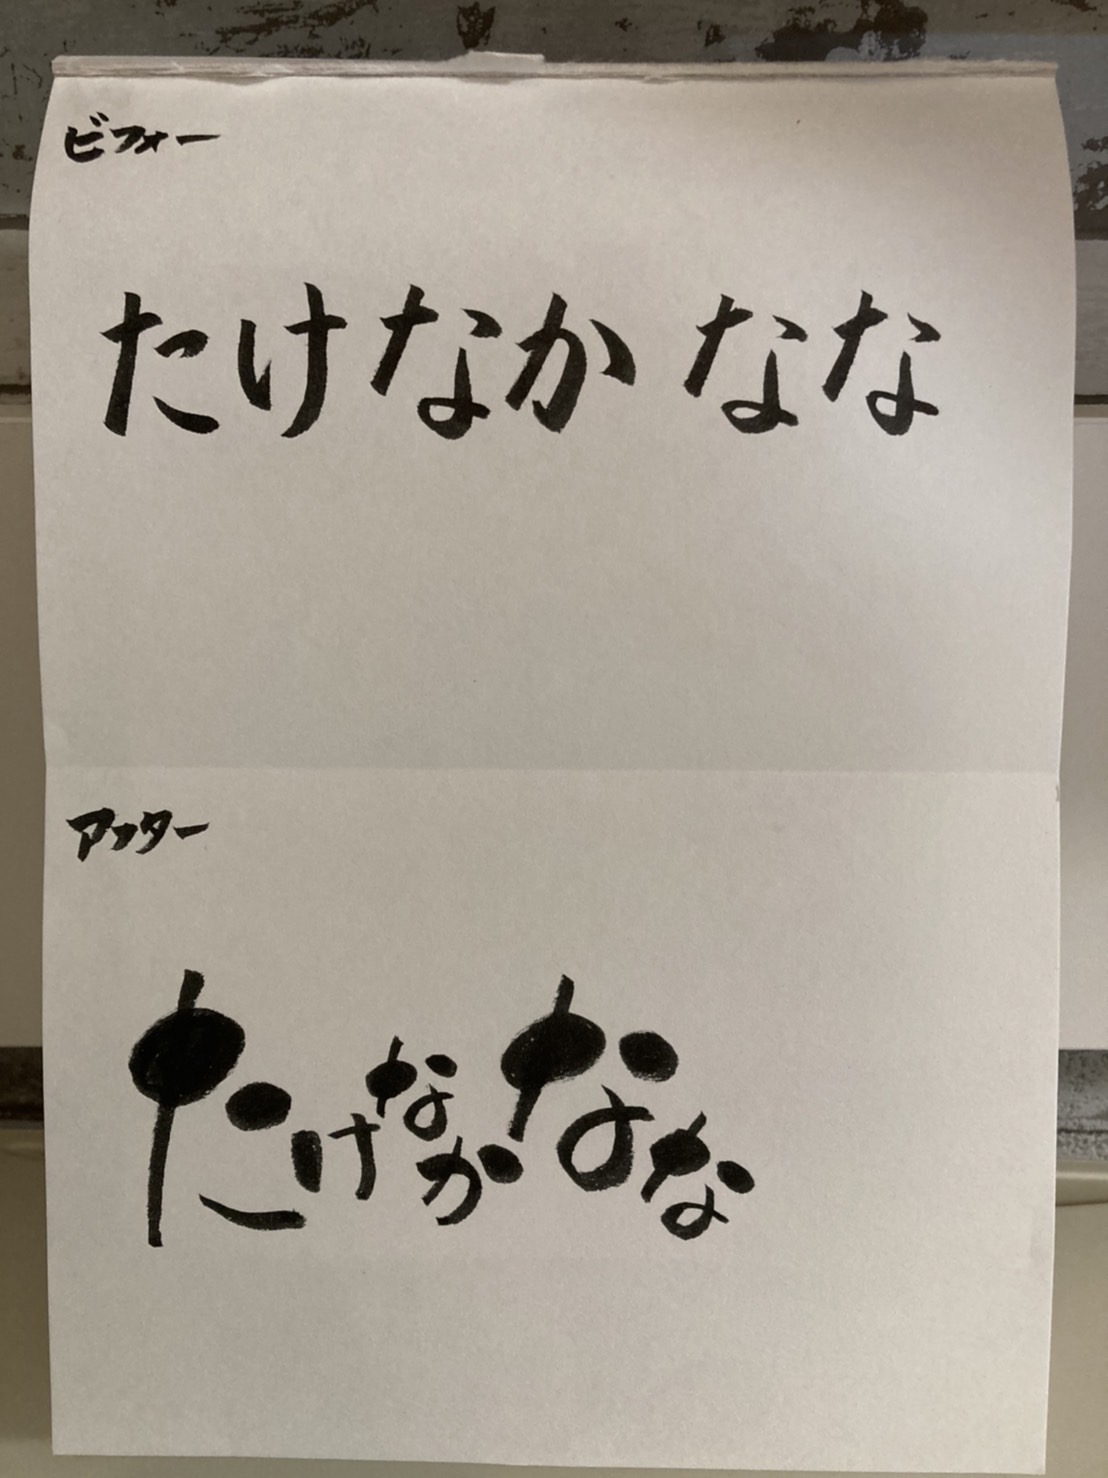 ビフォー
たけなか なな
アフター
たけなかなな